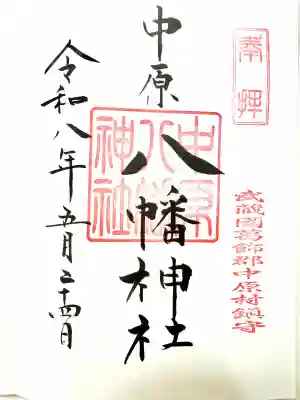 奉拝
武蔵國葛飾郡中原村鎮守
中原八幡神社
中原八幡神社
令和八年五月二十四日